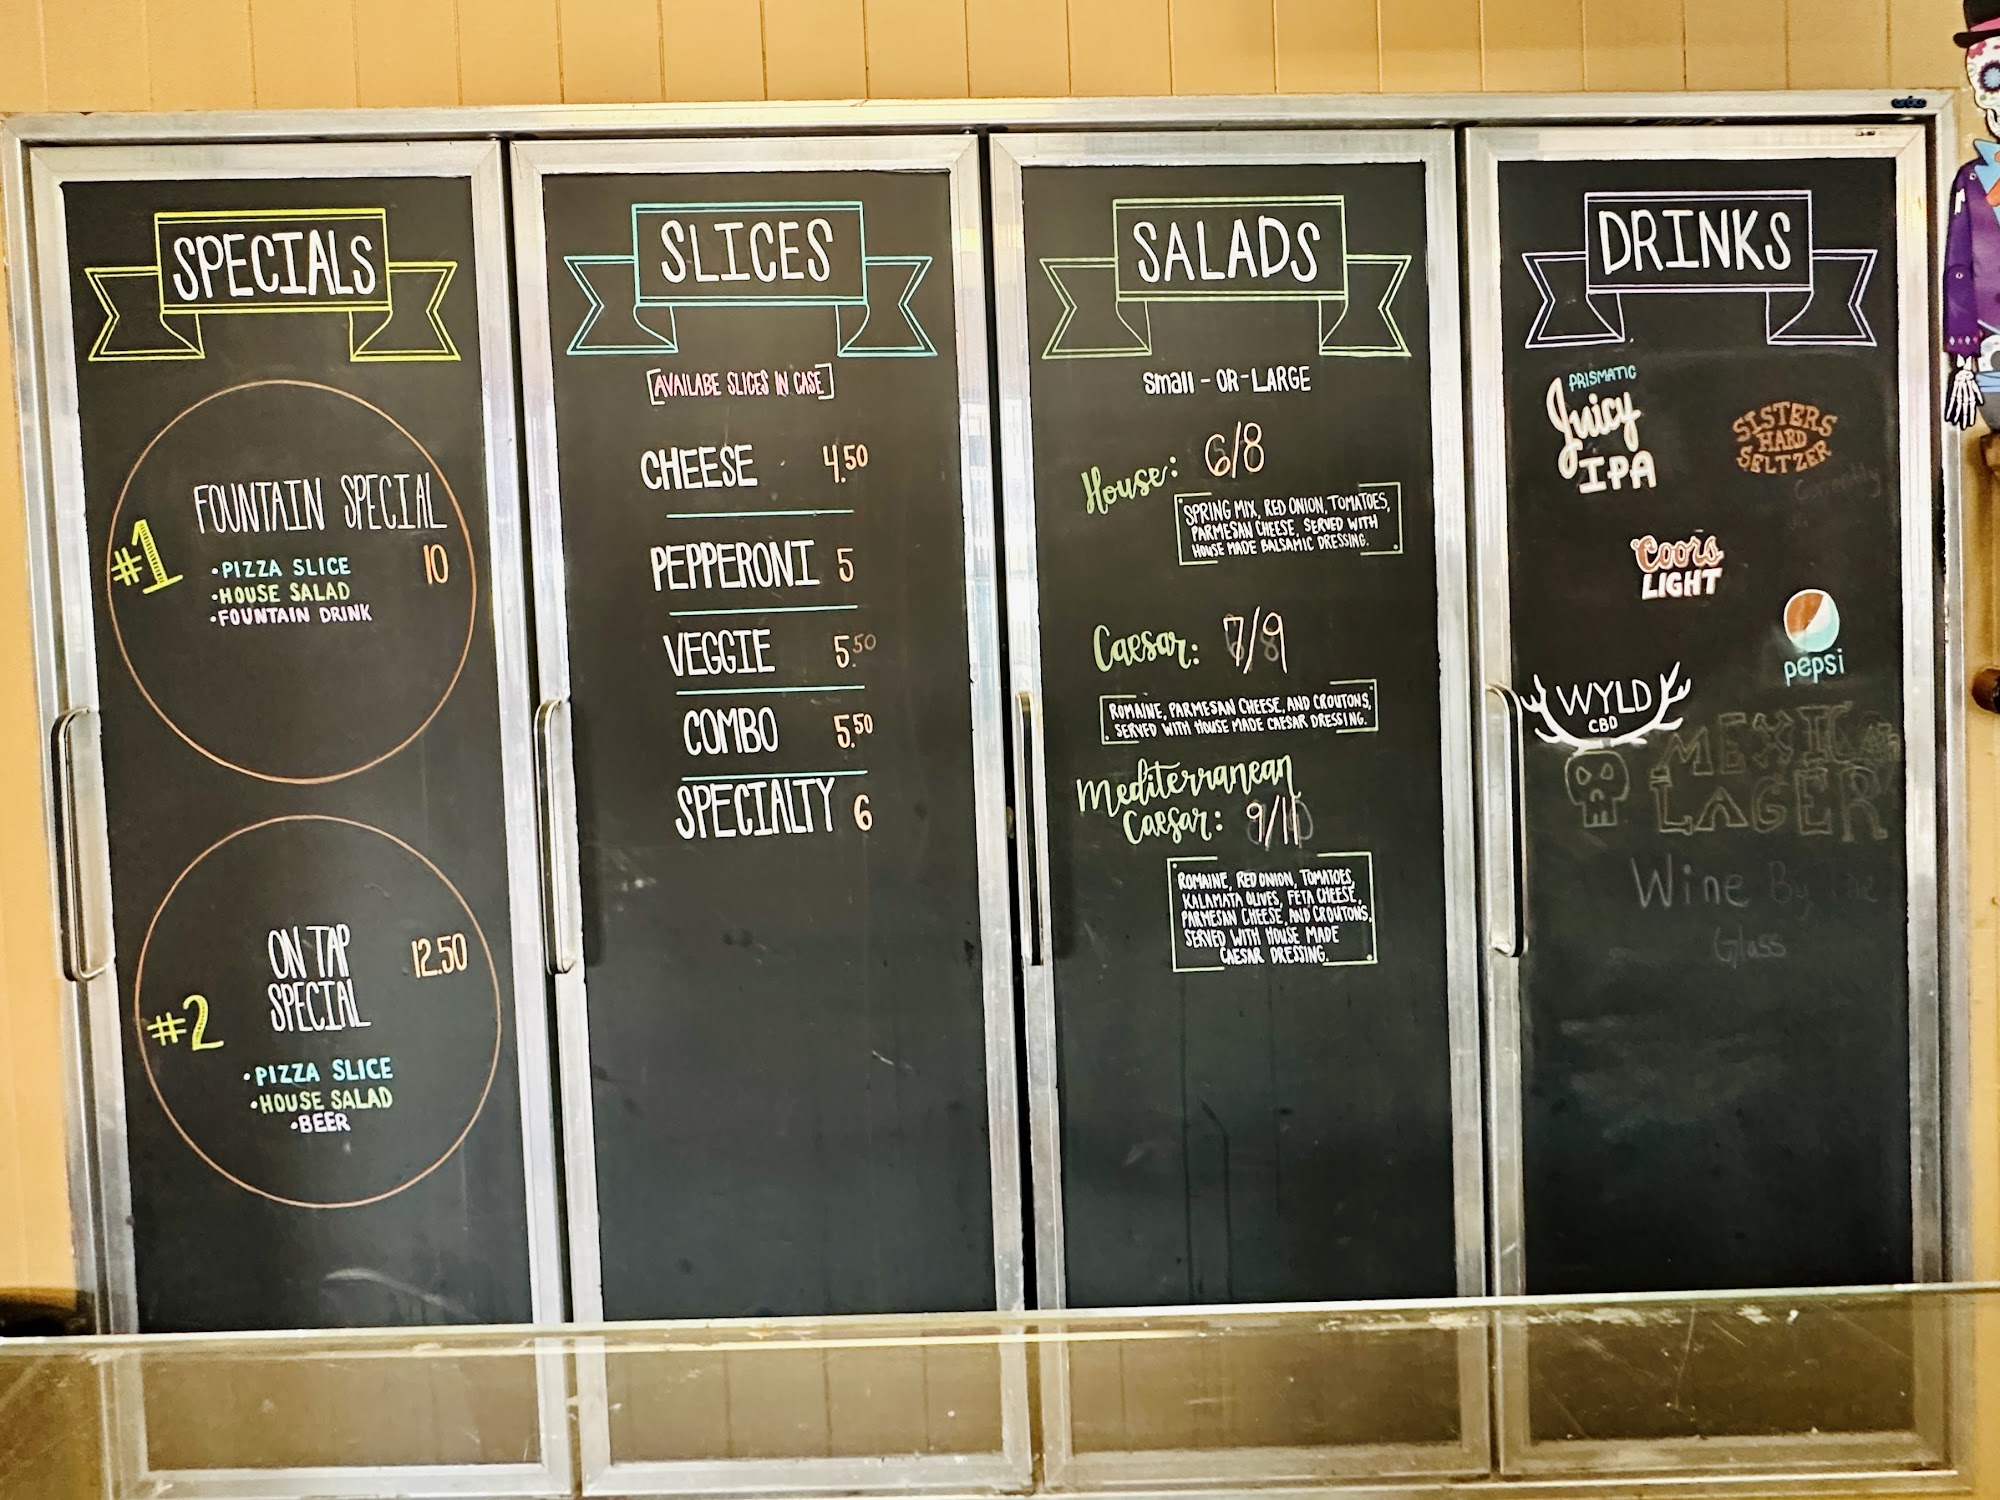 SPECIALS
#1
FOUNTAIN SPECIAL
•PIZZA SLICE
10
•HOUSE SALAD
•FOUNTAIN DRINK
ON TAP
12.50
SPECIAL
#2
•PIZZA SLICE
•HOUSE SALAD
•BEER
SLICES
[AVAILABE SLICES IN CASE]
CHEESE 4.50
PEPPERONI 5
VEGGIE 5.50
COMBO 5.50
SPECIALTY 6
SALADS
small-OR-LARGE
House: 6/8
SPRING MIX, RED ONION, TOMATOES,
PARMESAN CHEESE, SERVED WITH
HOUSE MADE BALSAMIC DRESSING.
Caesar: 7/9
ROMAINE, PARMESAN CHEESE, AND CROUTONS,
SERVED WITH HOUSE MADE CAESAR DRESSING.
Mediterranean
Caesar: 9/11
ROMAINE, RED ONION, TOMATOES,
KALAMATA OLIVES, FETA CHEESE,
PARMESAN CHEESE, AND CROUTONS,
SERVED WITH HOUSE MADE
CAESAR DRESSING.
DRINKS
PRISMATIC
Juicy
IPA
SISTERS
HARD
SELTZER
Coors
LIGHT
pepsi
WYLD
CBD
LAGER
Wine By the
Glass